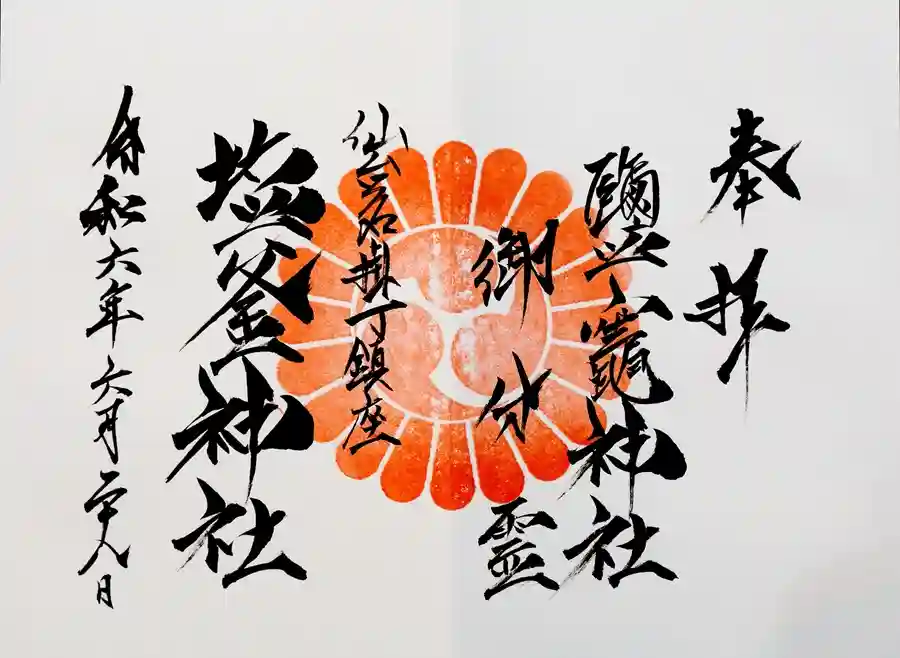 奉拝
鹽竈神社
御分霊
仙台名掛丁鎮座
塩釜神社
令和六年六月二十八日